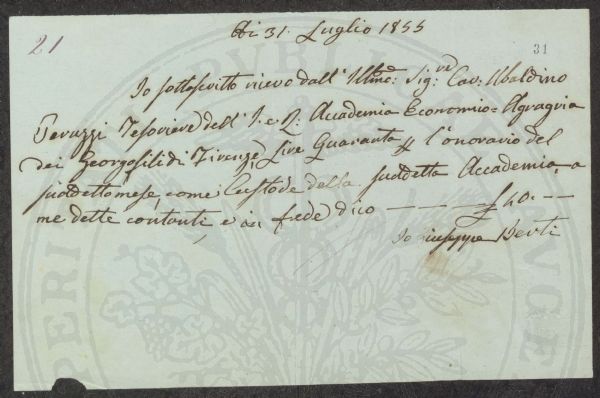 21
Di 31. Luglio 1855
31
Io sottoscritto ricevo dall' Illmo: Sig:re Cav: Ubaldino
Peruzzi Tesoriere dell' I. e R: Accademia Economico=Agraria
dei Georgofili di Firenze Lire Quaranta l'onorario del
suddetto mese, come Custode della suddetta Accademia, a
me dette contanti, e in fede dico £ 40. —
Io Giuseppe Berti
PERI PUBLICA